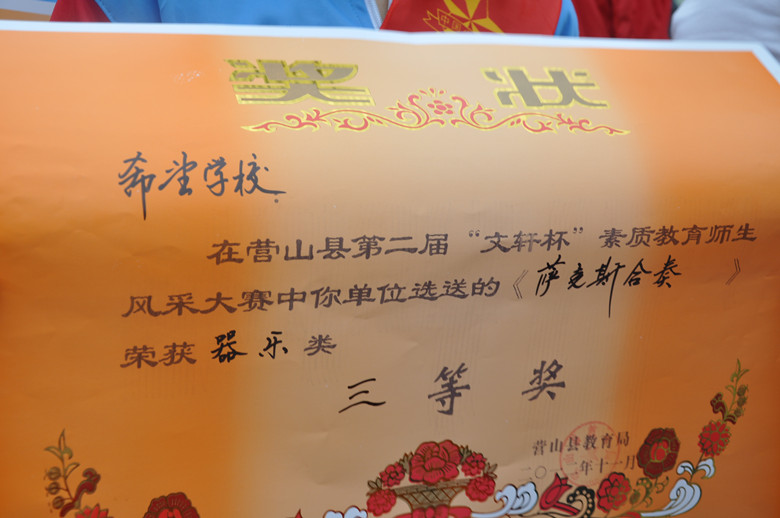 奖 状
希望学校
在营山县第二届“文轩杯”素质教育师生
风采大赛中你单位选送的《萨克斯合奏》
荣获器乐类
三等奖
营山县教育局
二〇一二年十一月